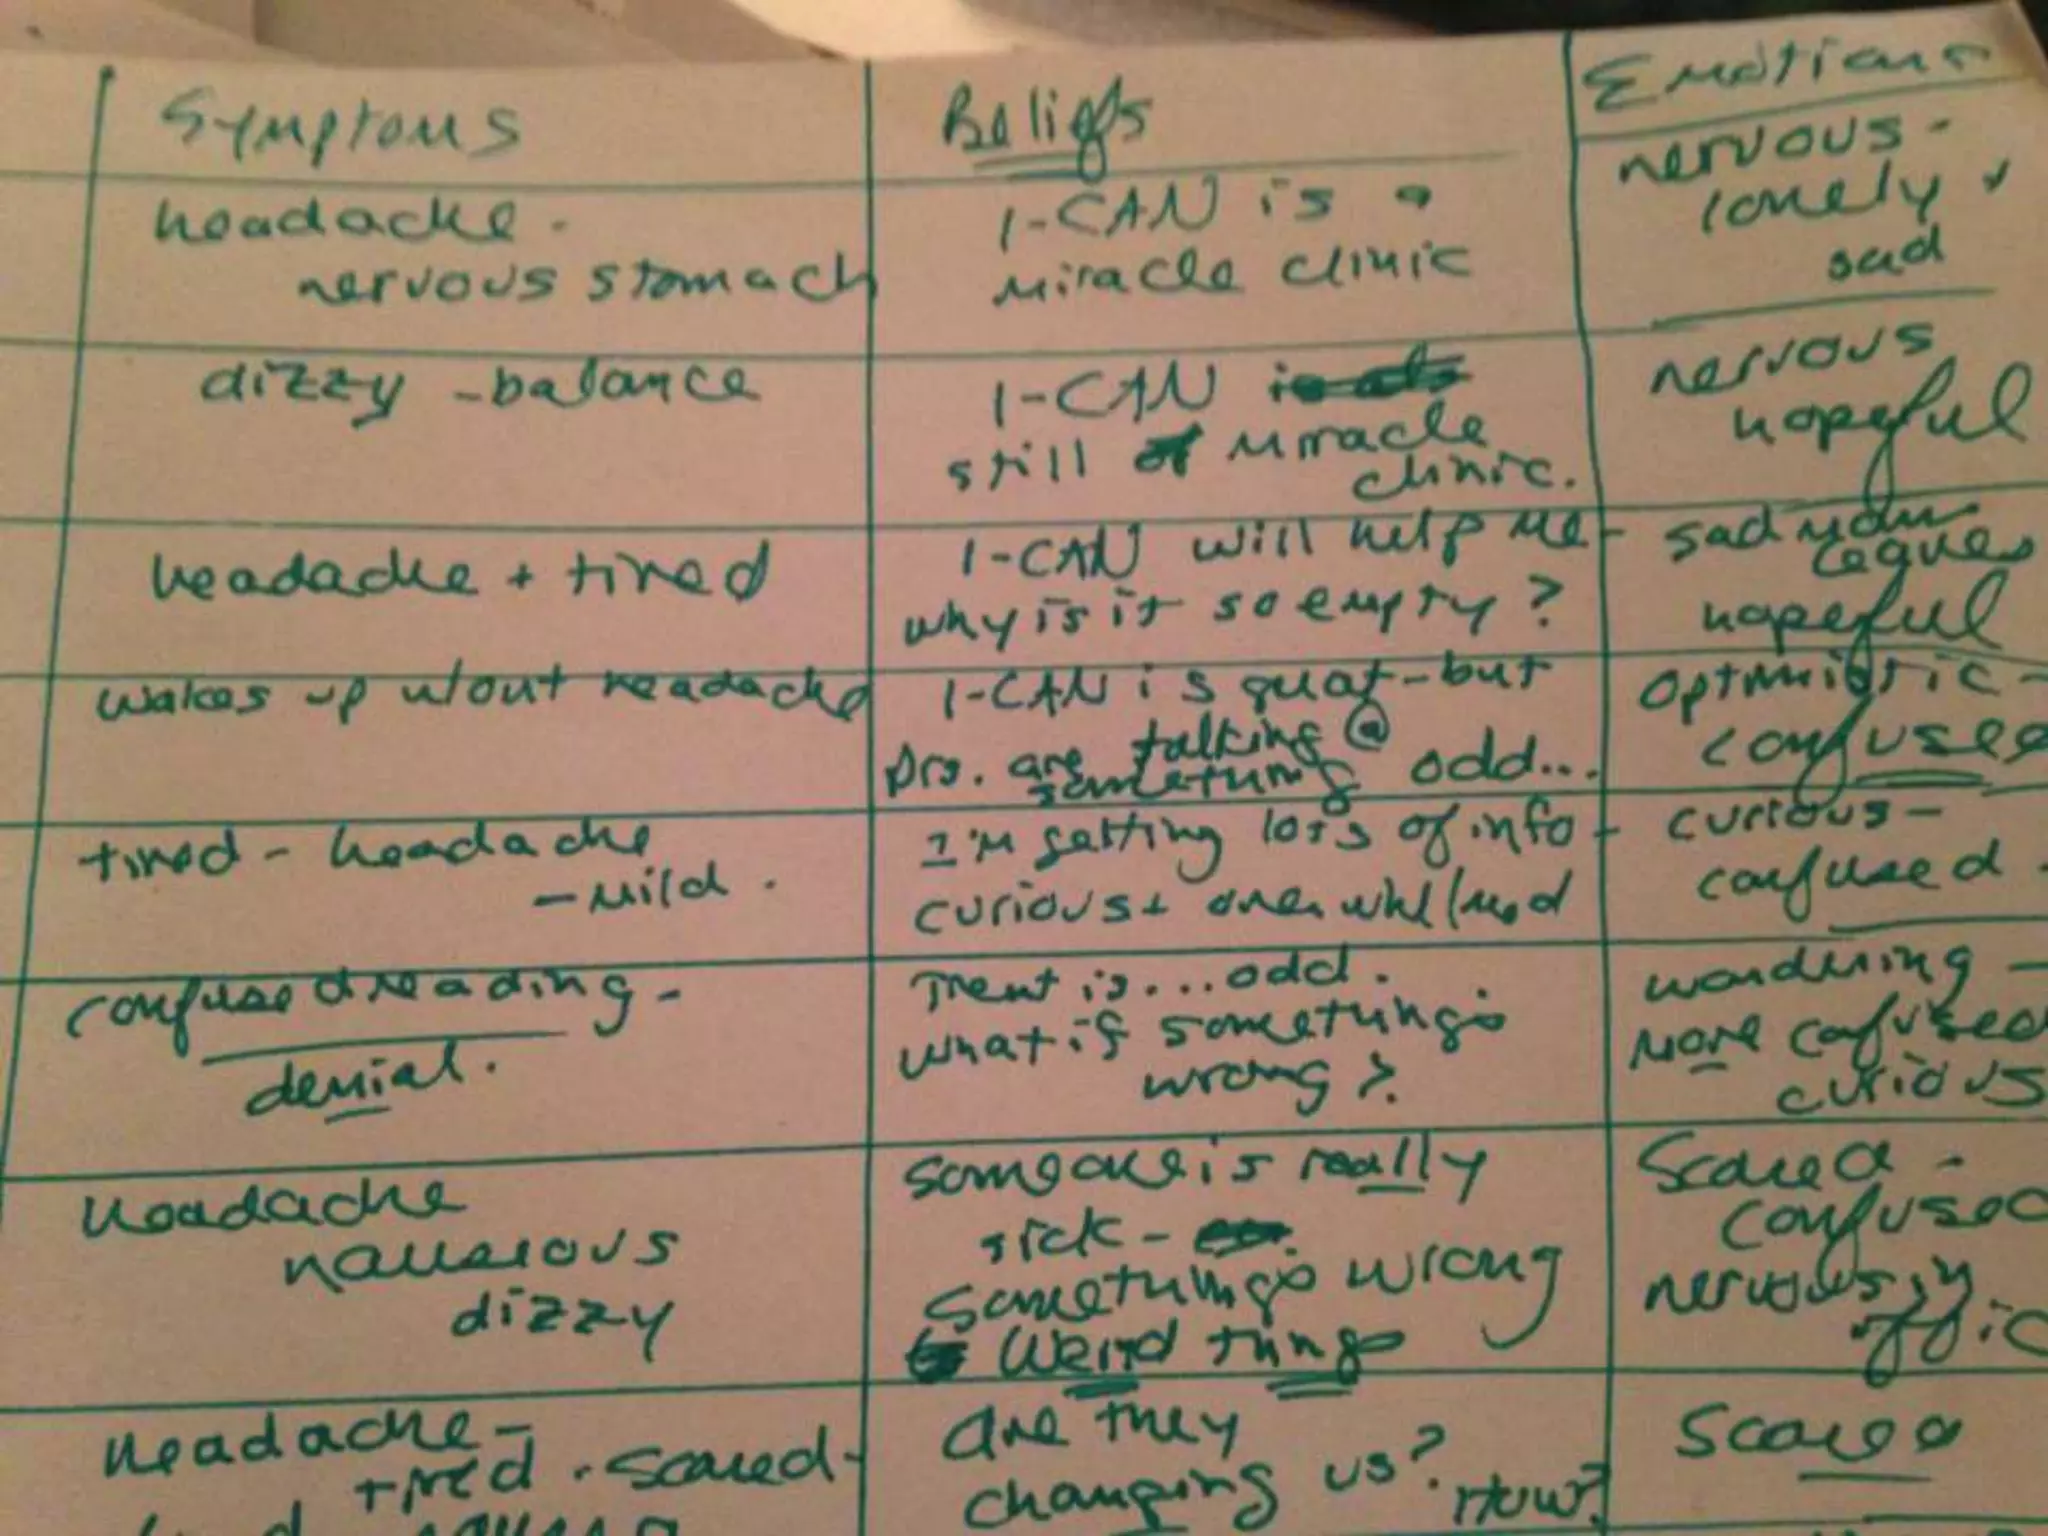 Symptoms
Beliefs
Emotions
headache -
nervous stomach
I-CAN is a
miracle clinic
nervous -
lonely +
sad
dizzy - balance
I-CAN
still miracle
clinic.
nervous
hopeful
headache + tired
I-CAN will help me -
why is it so empty?
sad mom
leaves
hopeful
wakes up w/out headache
I-CAN is great - but
Drs. are talking @
something odd...
optimistic -
confused
tired - headache
- mild.
I'm getting lots of info -
curious + overwhelmed
curious -
confused.
confused reading -
denial.
Trent is... odd.
what if something's
wrong?
wondering -
more confused
curious
headache
nauseous
dizzy
Someone is really
sick -
Something's wrong
Weird things
Scared -
confused
nervous in
headache -
tired - scared -
are they
changing us? How?
Scared